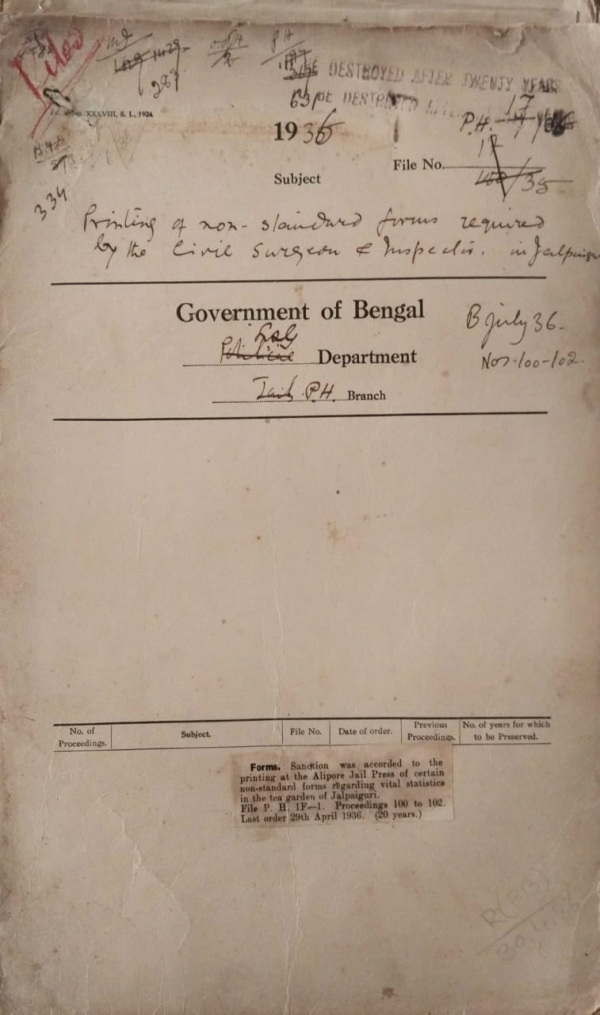 Filed
TO BE DESTROYED AFTER TWENTY YEARS
BE DESTROYED
XXXVIII, S. I., 1924.
1936
P.H.
287
334
Subject
File No.
Printing of non-standard forms required
by the Civil Surgeon & Inspector. in Jalpaiguri
Government of Bengal
B July 36.
Political Department
Nos. 100-102.
Jails P.H. Branch
No. of Proceedings.
Subject.
File No.
Date of order.
Previous Proceedings.
No. of years for which to be Preserved.
Forms. Sanction was accorded to the
printing at the Alipore Jail Press of certain
non-standard forms regarding vital statistics
in the tea garden of Jalpaiguri.
File P. H. 1F—1. Proceedings 100 to 102.
Last order 29th April 1936. (20 years.)